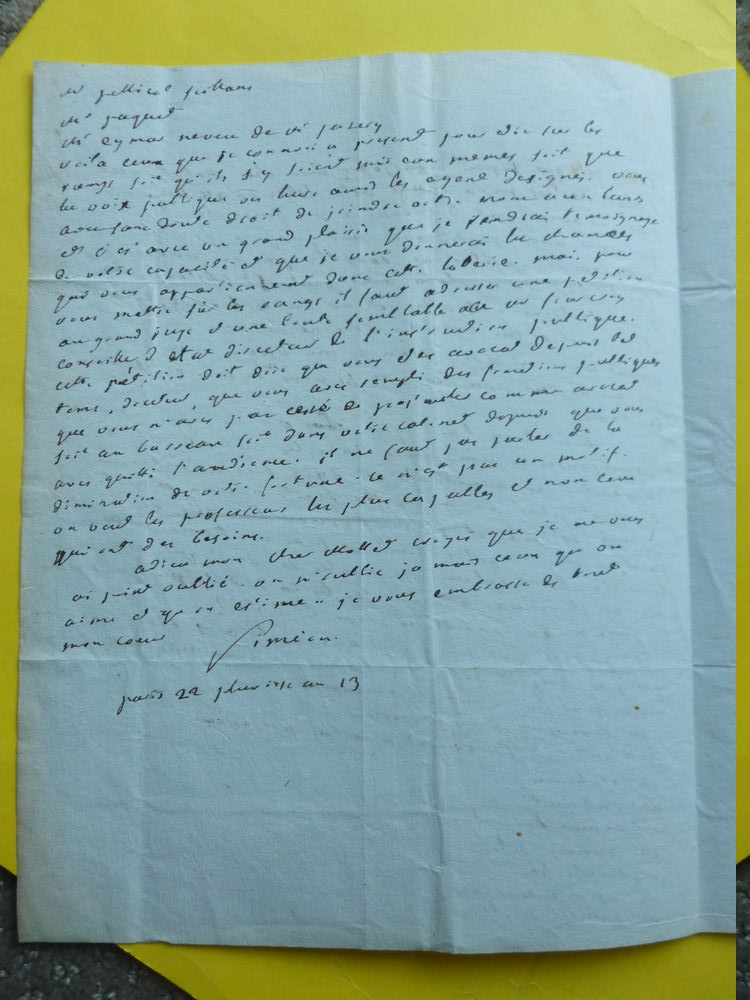 Mr pellicot
Mr paquet
Mr eymar neveu de Mr
voila ceux que je connois a present pour etre sur les
rangs soit qu'ils s'y soient mis eux memes soit que
la voix publique ou leurs amis les ayent designés. vous
aves sans doute droit de joindre votre nom aux leurs
et c'est avec un grand plaisir que je rendrai temoignage
de votre capacité et que je vous donnerai les chances
qui vous appartiennent dans cette loterie. mais pour
vous mettre sur les rangs il faut adresser une petition
au grand juge et une toute semblable a Mr fourcroy
conseiller d'etat directeur de l'instruction publique.
cette petition doit dire que vous etes avocat depuis tel
tems, docteur, que vous aves rempli des fonctions publiques
que vous n'aves pas cessé de professer comme avocat
soit au barreau soit dans votre cabinet depuis que vous
aves quitté l'audience. il ne faut pas parler de la
diminution de votre fortune. ce n'est pas un motif.
on veut les professeurs les plus capables et non ceux
qui ont des besoins.
adieu mon cher Mottet croyés que je ne vous
ai point oublié. on n'oublie jamais ceux qu'on
aime et qu'on estime. je vous embrasse de tout
mon coeur Siméon.
paris 22 pluviose an 13